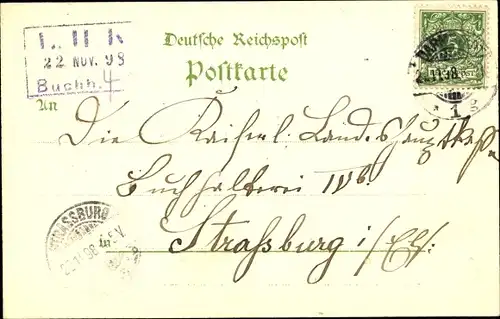 L. H. K
22 NOV. 98
Buchh. 4
Deutsche Reichspost
Postkarte
An
Die Kaiserl. Landeshauptkasse
Buchhalterei IVb.
in Straßburg i/Els.
STRASSBURG
1